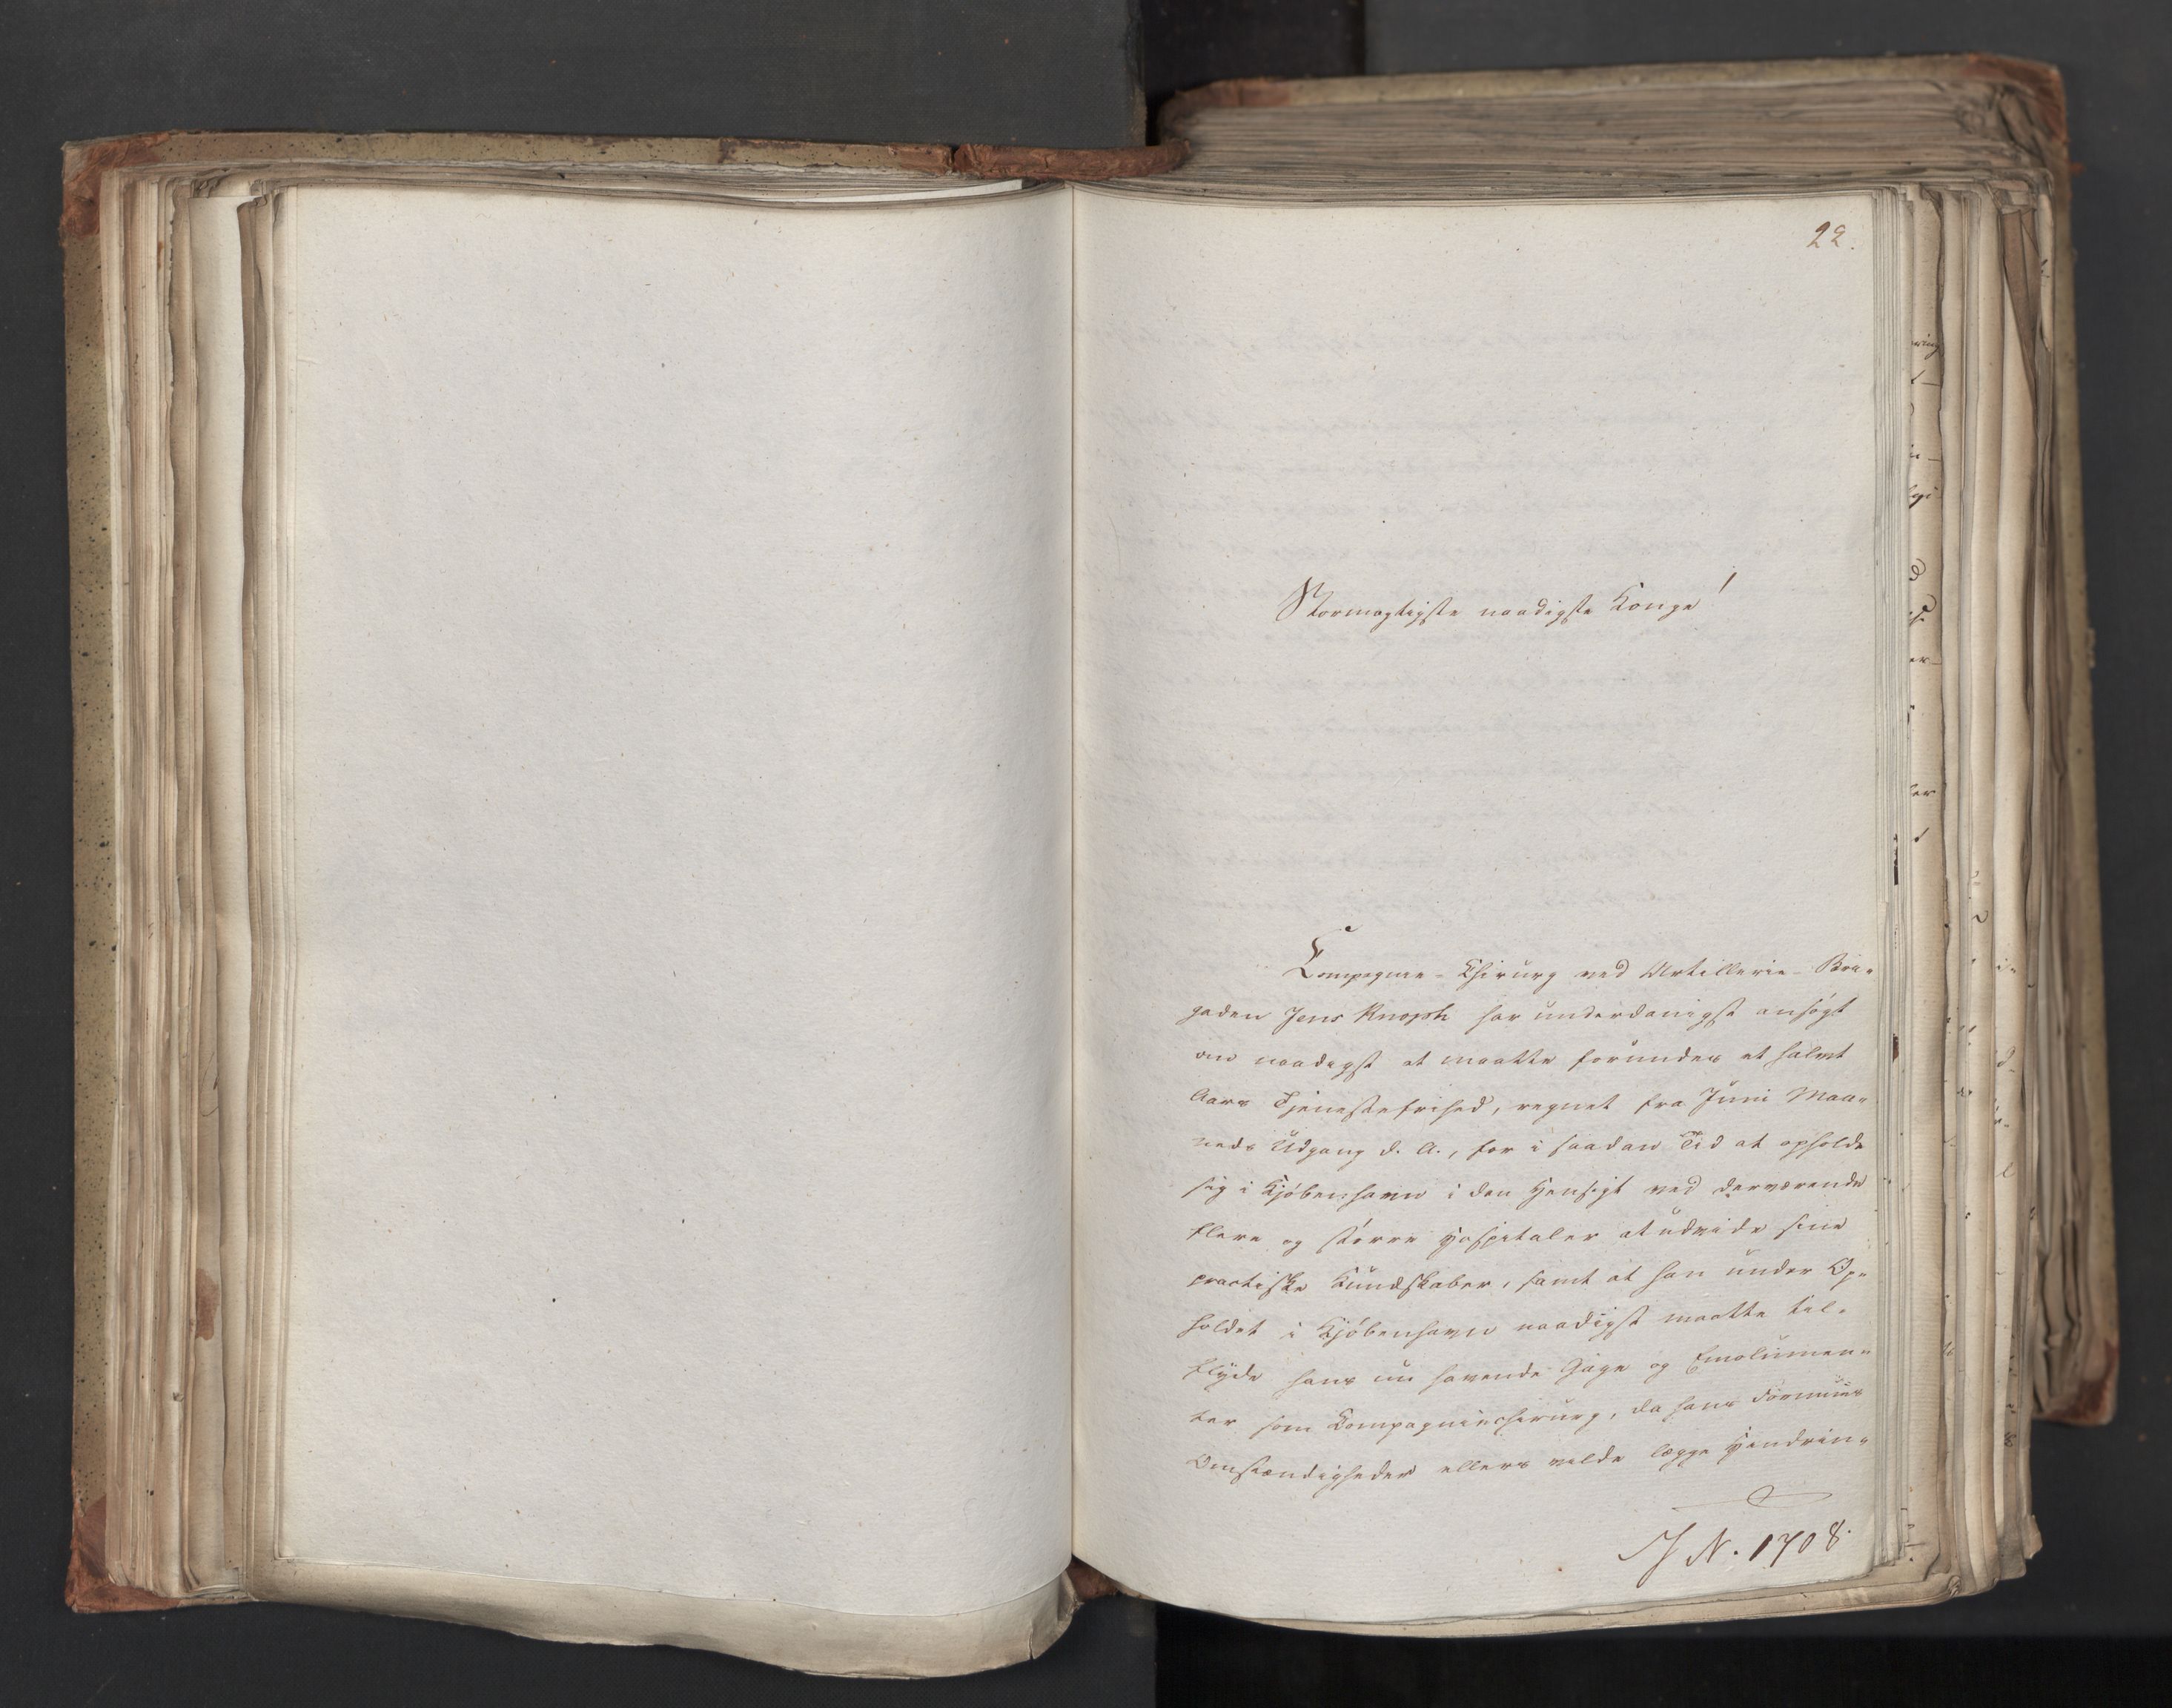 22.
Stormægtigste naadigste Konge!
Compagnie-Chirurg ved Artillerie-Bri-
gaden Jens Knoph har underdanigst ansøgt
om naadigst at maatte forundes et halvt
Aars Tjenestefrihed, regnet fra Juni Maa-
neds Udgang d. A., for i saadan Tid at opholde
sig i Kjøbenhavn i den Hensigt ved derværende
flere og større Hospitaler at udvide sine
practiske Kundskaber, samt at han under Op-
holdet i Kjøbenhavn naadigst maatte til-
flyde hans nu havende Gage og Emolumen-
ter som Compagniechirurg, da hans Formues
Omstændigheder ellers vilde lægge Hindrin-
J N. 1708.